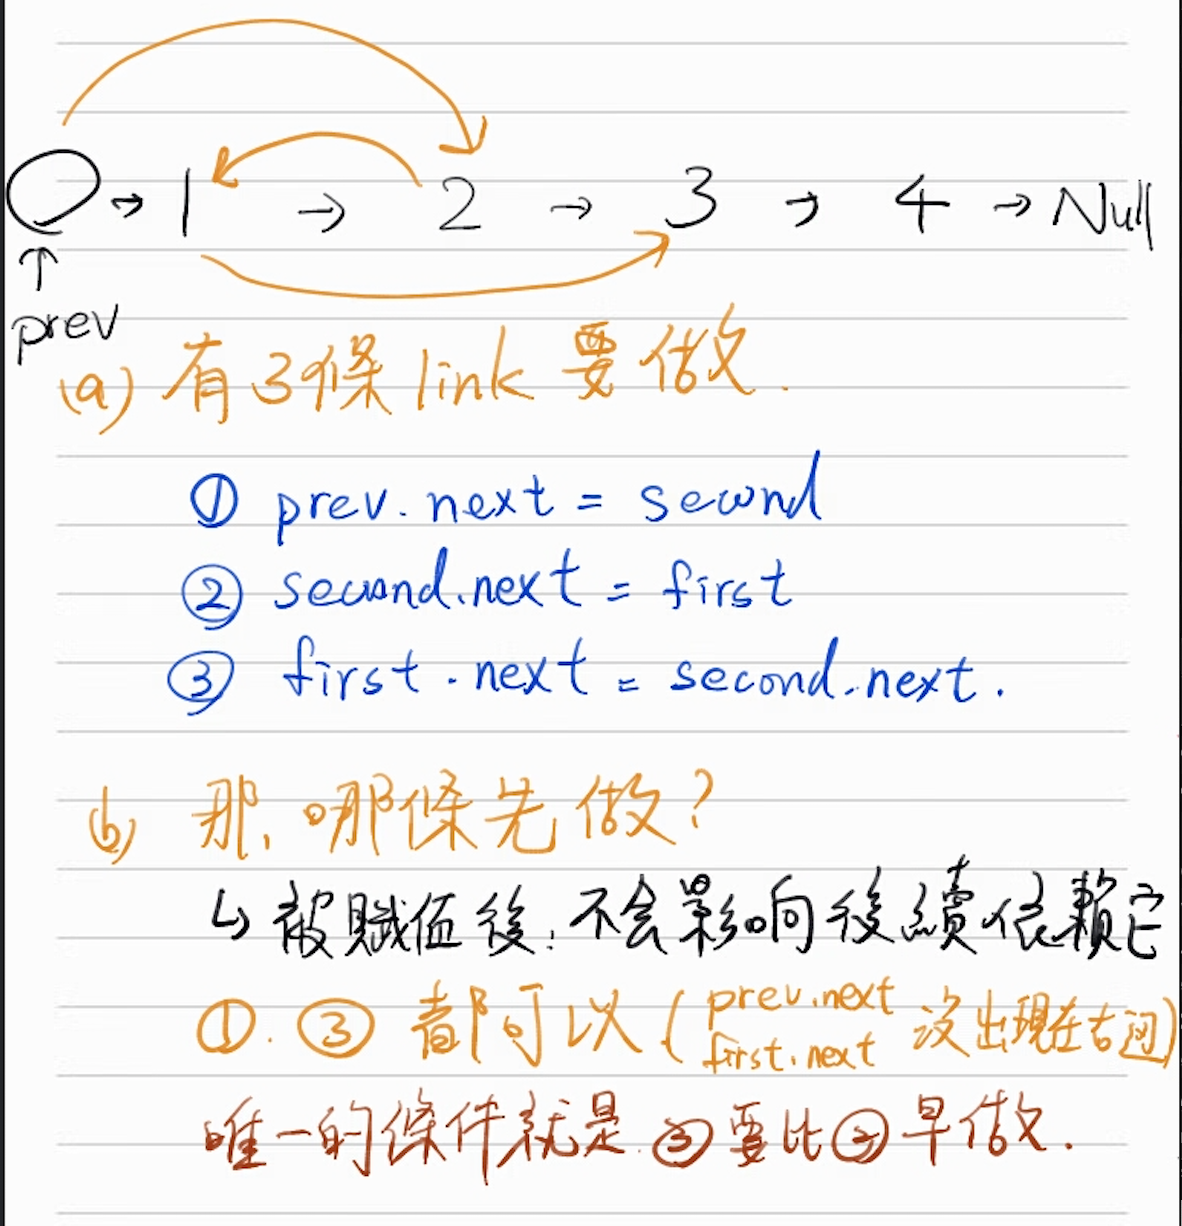 → 1 → 2 → 3 → 4 → Null
↑
prev
(a) 有3條 link 要做.
① prev.next = second
② second.next = first
③ first.next = second.next.
(b) 那, 哪條先做?
↳ 被賦值後, 不会影响後續依賴它
①. ③ 都可以 ( prev.next
first.next 没出現在右边)
唯一的條件就是 ③要比②早做.